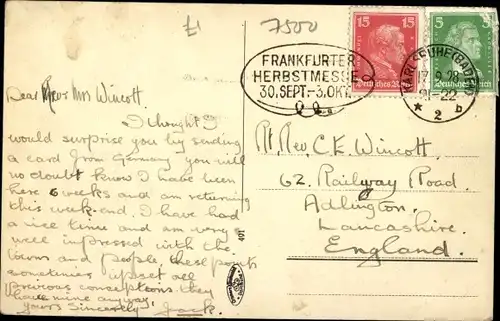 £1
7500
15 15
Deutsches Reich
5 5
Deutsches Reich
FRANKFURTER
HERBSTMESSE
30. SEPT.-3. OKT.
KARLSRUHE (BADEN)
17.9.28
21-22
* 2 b
Dear Mrs Wincott.
I thought I
would surprise you by sending
a card from Germany you will
no doubt know I have been
here 6 weeks and am returning
this week-end. I have had
a nice time and am very
well impressed with the
towns and people, these points
sometimes upset all
previous conceptions they
have mine anyway.
Yours Sincerely Jack.
Rt. Rev. C. E. Wincott.
62. Railway Road.
Adlington.
Lancashire.
England.